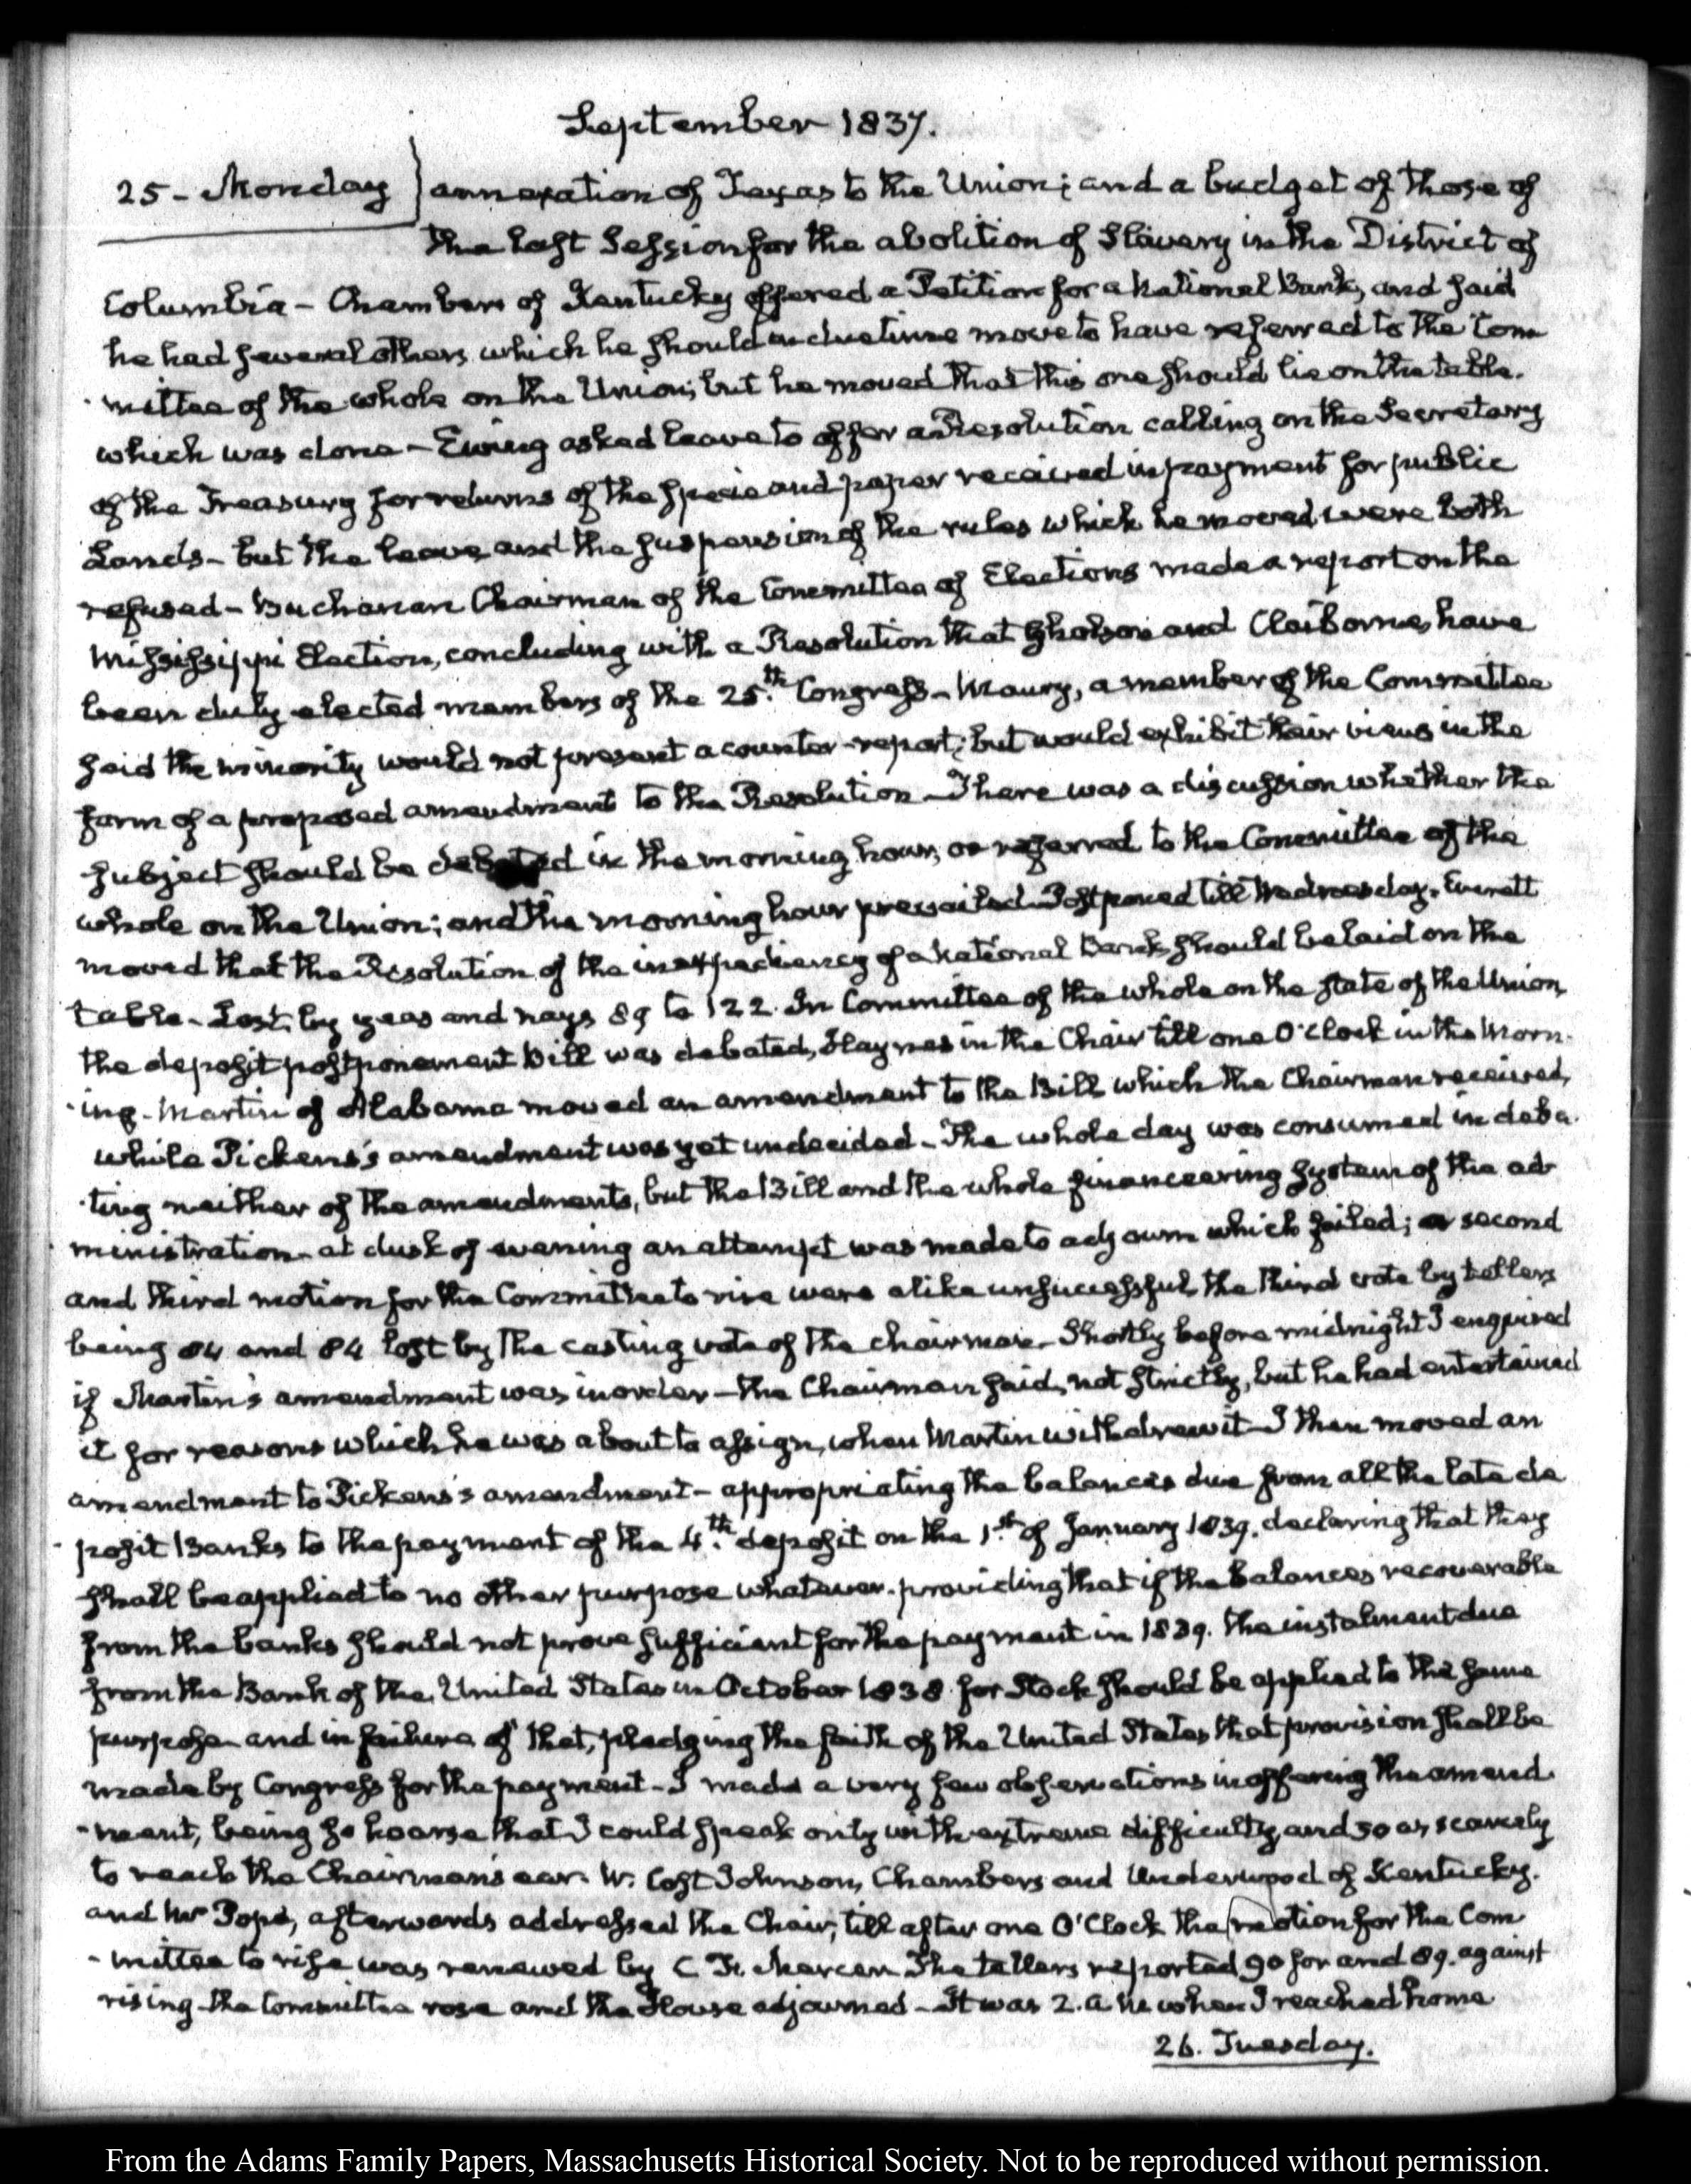 September 1837.
25 - Monday annexation of Texas to the Union; and a budget of those of
the last Session for the abolition of Slavery in the District of
Columbia - Chambers of Kentucky offered a Petition for a National Bank, and said
he had several others which he should in due time move to have referred to the Com
-mittee of the whole on the Union; but he moved that this one should lie on the table.
which was done - Ewing asked leave to offer a Resolution calling on the Secretary
of the Treasury for returns of the specie and paper received in payment for public
Lands - but the leave and the suspension of the rules which he moved were both
refused - Buchanan Chairman of the Committee of Elections made a report on the
Mississippi Election, concluding with a Resolution that Gholson and Claiborne, have
been duly elected members of the 25.th Congress - Maury, a member of the Committee
said the minority would not present a counter-report; but would exhibit their views in the
form of a proposed amendment to the Resolution - There was a discussion whether the
subject should be debated in the morning hour, or referred to the Committee of the
whole on the Union; and the morning hour prevailed - Postponed till Wednesday. Everett
moved that the Resolution of the inexpediency of a National Bank should be laid on the
table - Lost, by yeas and nays 89 to 122. In Committee of the whole on the state of the Union,
the deposit postponement Bill was debated, Haynes in the Chair till one O'Clock in the Morn-
-ing - Martin of Alabama moved an amendment to the Bill which the Chairman received,
while Pickens's amendment was yet undecided - The whole day was consumed in deba-
-ting neither of the amendments, but the Bill and the whole financeering system of the ad
ministration - at dusk of evening an attempt was made to adjourn which failed; a second
and third motion for the Committee to rise were alike unsuccessful, the third vote by tellers
being 84 and 84 lost by the casting vote of the chairman - Shortly before midnight I enquired
if Martin's amendment was in order - the Chairman said, not strictly, but he had entertained
it for reasons which he was about to assign, when Martin withdrew it - I then moved an
amendment to Pickens's amendment - appropriating the balances due from all the late de
-posit Banks to the payment of the 4.th deposit on the 1.st of January 1839. declaring that they
shall be applied to no other purpose whatever. providing that if the balances recoverable
from the banks should not prove sufficient for the payment in 1839. the instalment due
from the Bank of the United States in October 1838 for Stock should be applied to the same
purpose and in failure of that, pledging the faith of the United States that provision shall be
made by Congress for the payment - I made a very few observations in offering the amend-
-ment, being so hoarse that I could speak only with extreme difficulty, and so as scarcely
to reach the Chairman's ear. W. Cost Johnson, Chambers and Underwood of Kentucky.
and Mr Pope, afterwards addressed the Chair, till after one O'Clock the motion for the Com
-mittee to rise was renewed by C. F. Mercer. The tellers reported 90 for and 89. against
rising - the Committee rose and the House adjourned - It was 2. a.m when I reached home
26. Tuesday.
From the Adams Family Papers, Massachusetts Historical Society. Not to be reproduced without permission.